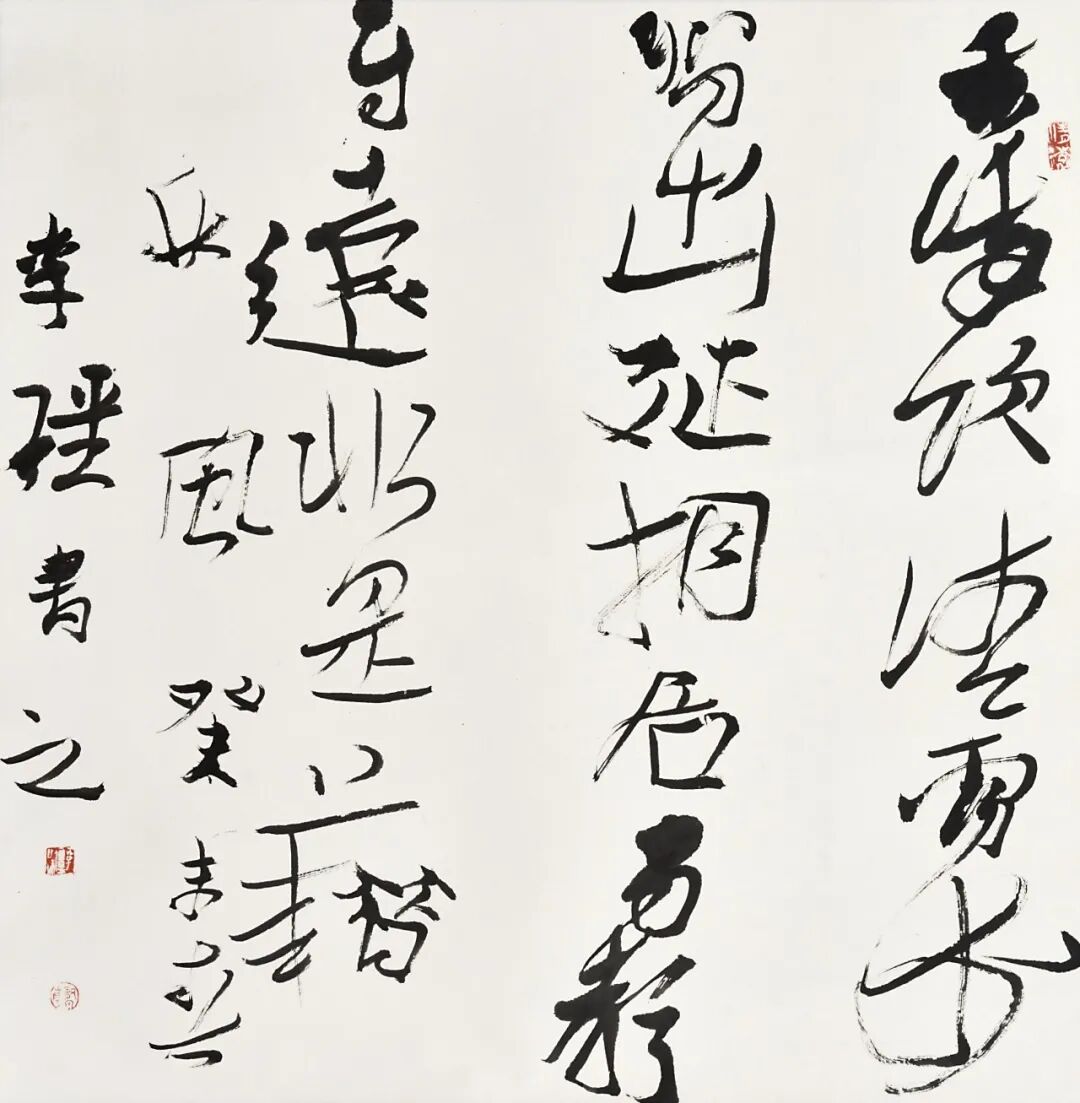 垂緌飲清露流
響出疏桐居高聲
自遠非是藉
秋風癸未
李書之